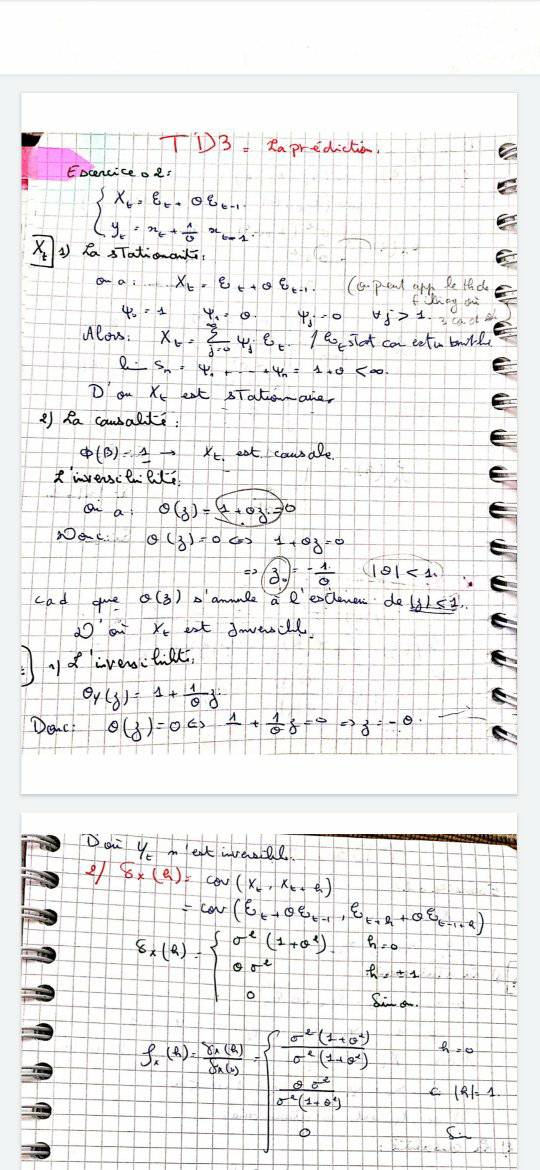 TD3 = La prédiction.
Exercice 02:
X_t = ε_t + θ ε_{t-1}
y_t = x_t + 1/θ x_{t-1}.
X_t 1) La stationarité:
on a: X_t = ε_t + θ ε_{t-1}. (on peut app le th de
ψ_0 = 1 ψ_1 = θ. ψ_j = 0 ∀j > 1.
Alors: X_t = Σ_{j=0}^{∞} ψ_j ε_t / ε_t stat car est un bruit
lim S_n = ψ_1 + ... + ψ_n = 1+θ < ∞.
D'où X_t est stationaire,
2) La causalité:
Φ(B) = 1 → X_t est causale.
L'inversibilité:
On a: θ(z) = 1+θz = 0
Donc: θ(z) = 0 ⇔ 1+θz = 0
⇒ z_0 = -1/θ |θ| < 1.
cad que θ(z) s'annule à l'extérieur de |z| < 1.
D'où X_t est Inversible.
1) L'inversibilité,
θ_Y(z) = 1 + 1/θ z.
Donc: θ(z) = 0 ⇔ 1 + 1/θ z = 0 ⇒ z = -θ.
D'où Y_t n'est inversible.
2/ γ_x(h) = cov(X_t, X_{t+h})
= cov(ε_t + θε_{t-1}, ε_{t+h} + θε_{t-1+h})
γ_x(h) = { σ²(1+θ²) h=0
θσ² h=±1
0 Sinon.
ρ_x(h) = γ_x(h)/γ_x(0) = { σ²(1+θ²)/σ²(1+θ²) h=0
θσ²/σ²(1+θ²) |h|=1.
0 Sin